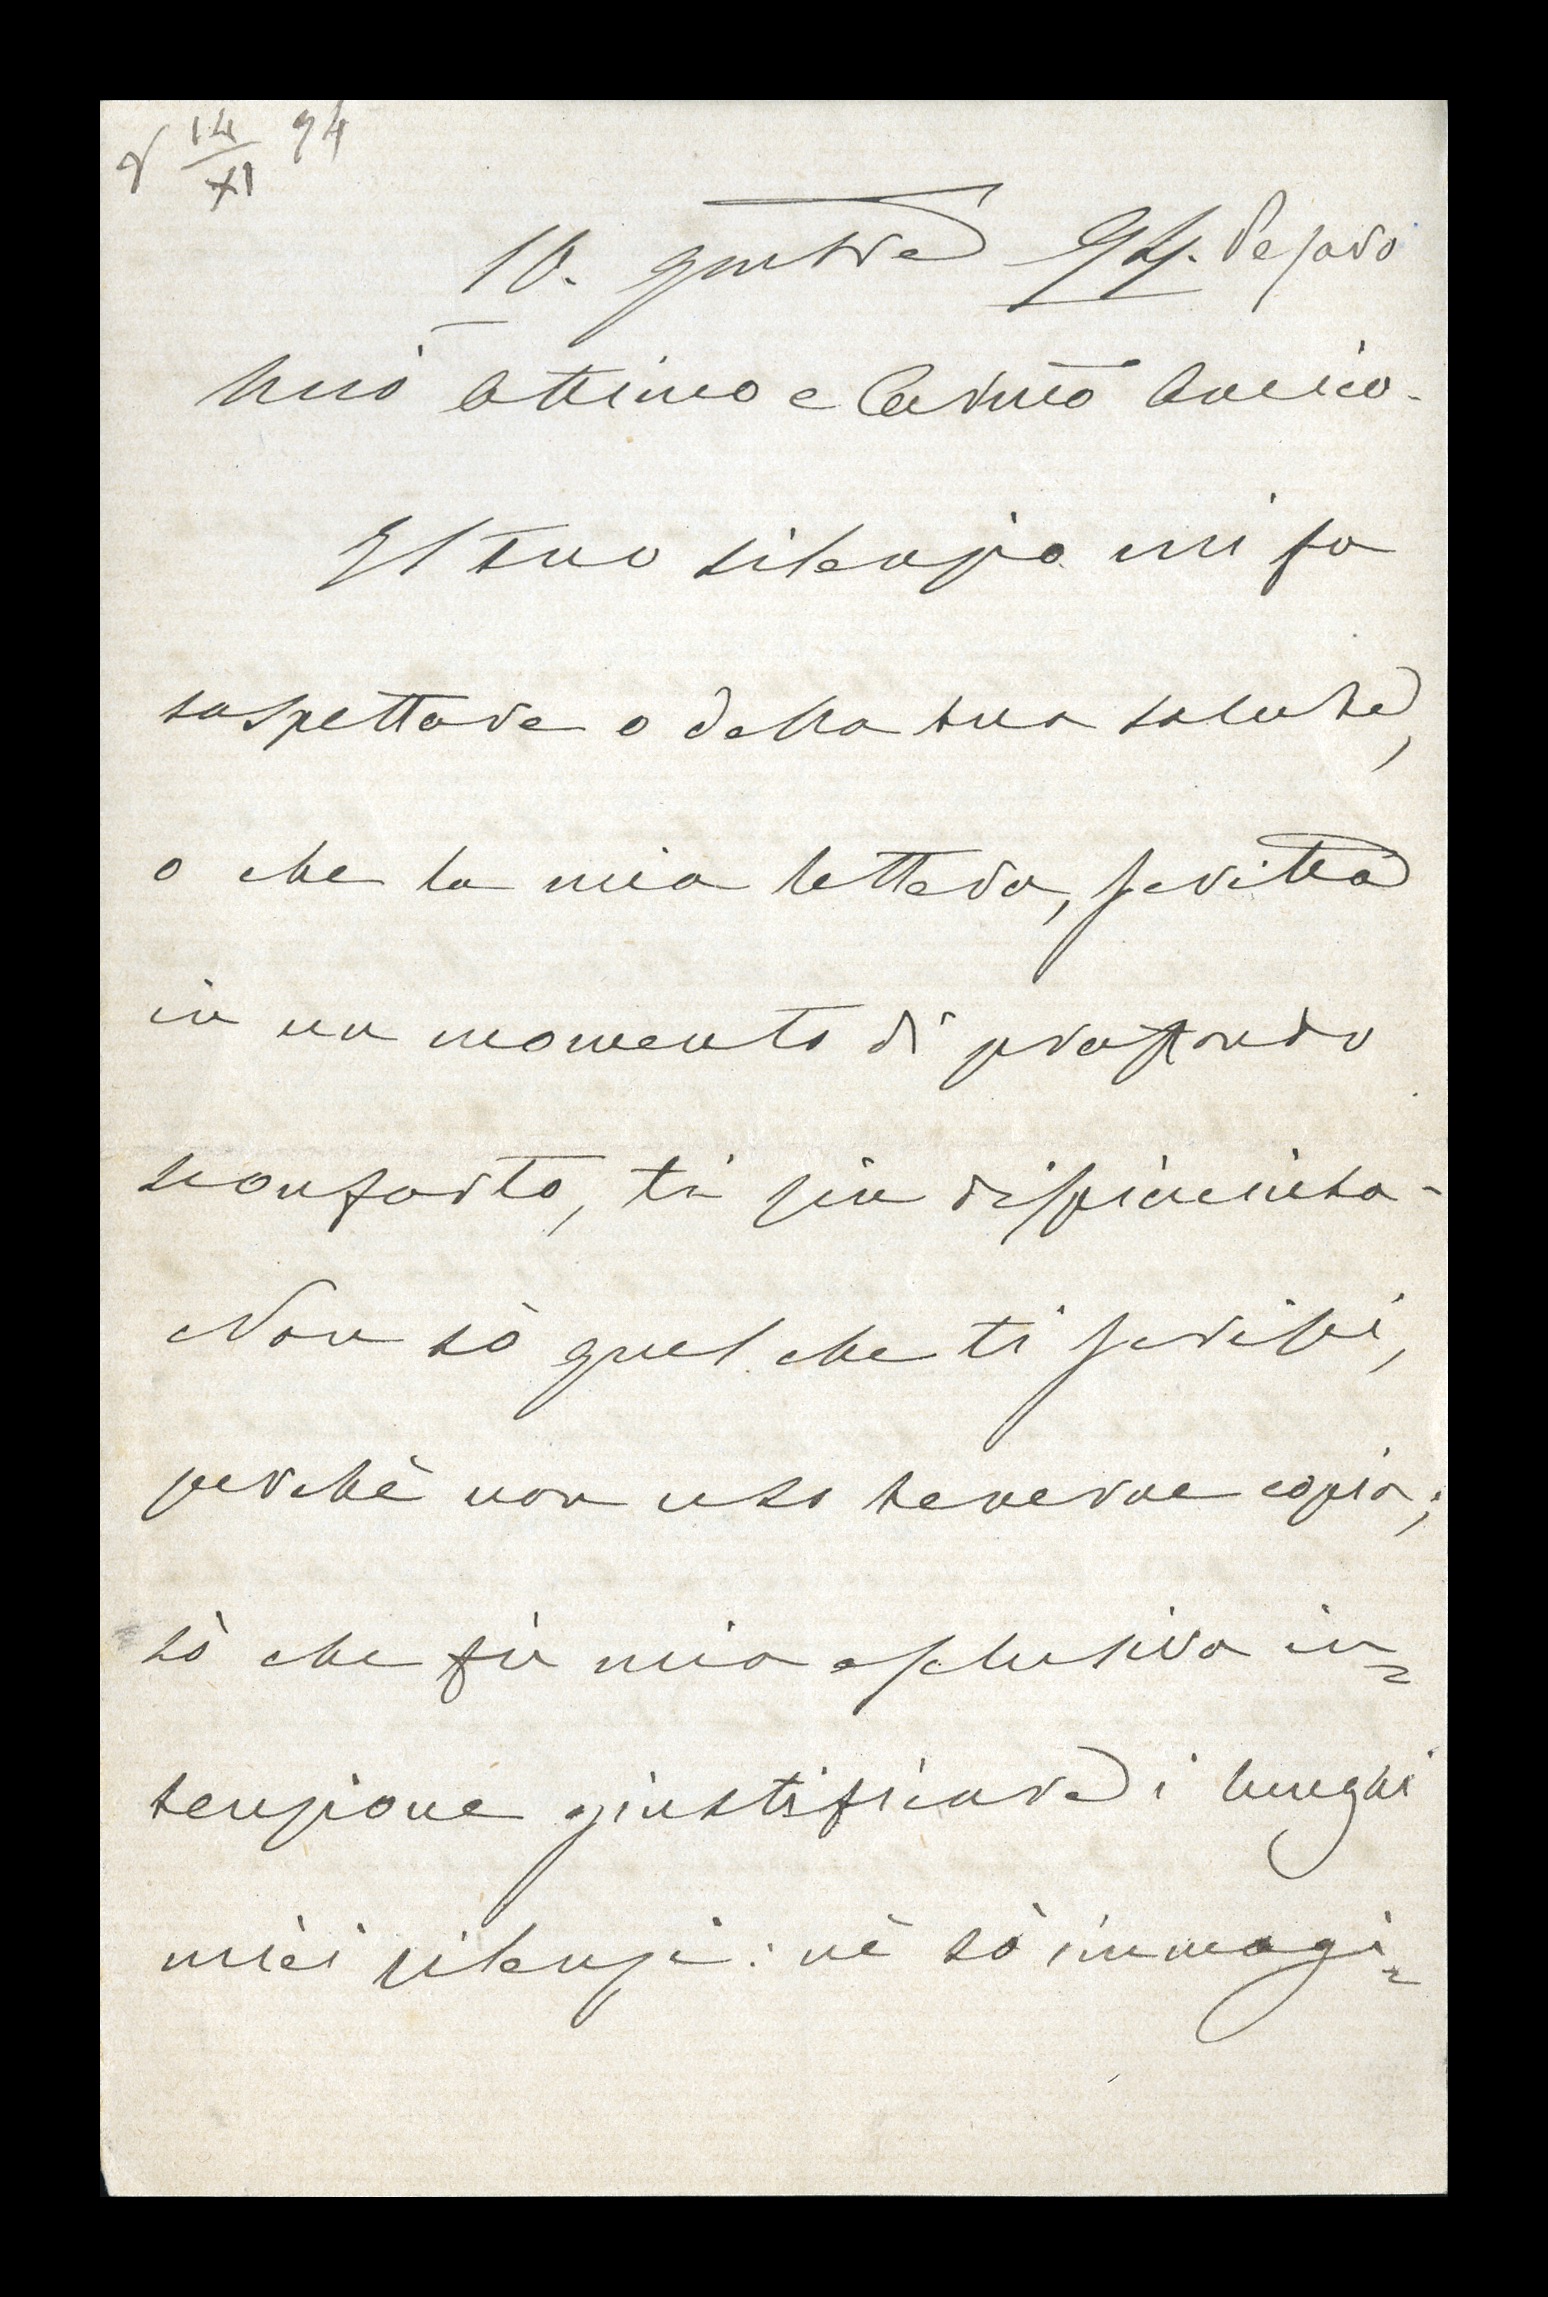 r 14/XI 94
10. 9mbre 94. Pesaro
Mio Ottimo e Carmo Amico.
Il tuo silenzio mi fa
sospettare o della tua salute,
o che la mia lettera, scritta
in un momento di profondo
sconforto, ti sia dispiaciuta.
Non sò quel che ti scrissi,
perchè non uso tenerne copia;
sò che fù mia esclusiva in=
tenzione giustificare i lunghi
miei silenzi: nè sò immagi=